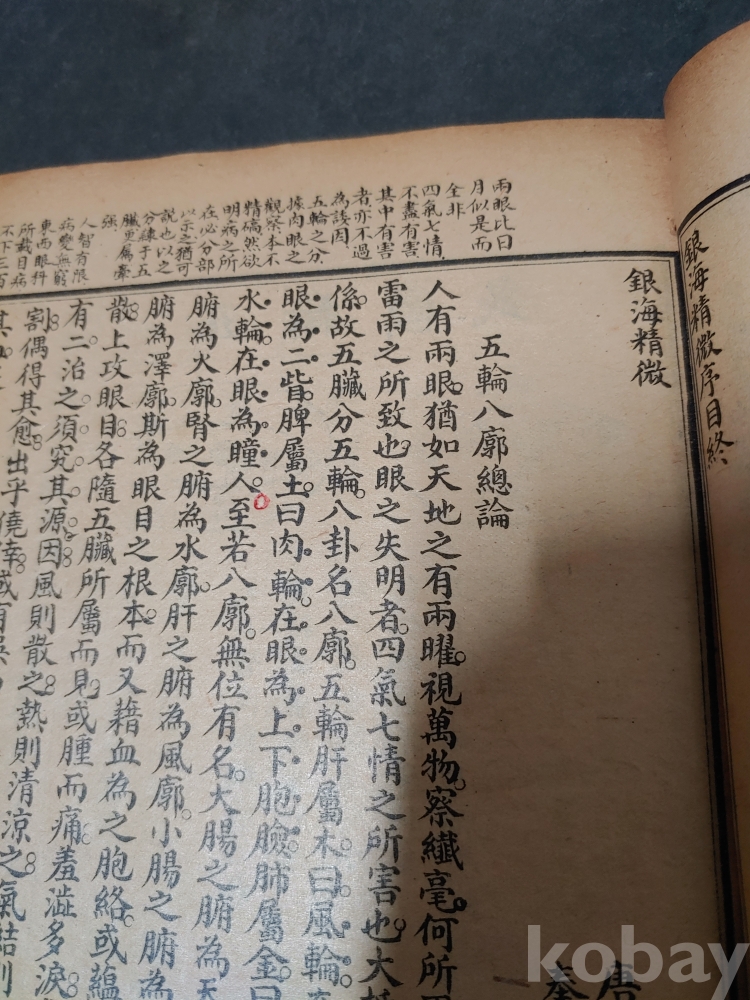 銀海精微序目終
兩眼比日
月似是而
全非
四氣七情
不盡有害
其中有害
者亦不過
為誘因
五輪之分
據肉眼之
觀察本不
精確然欲
明病之所
在必分部
以示之猶可
說也以之
分練于五
臟更屬牽
強
人智有限
病變無窮
東西眼科
所載目病
不下三百
銀海精微
唐
五輪八廓總論
人有兩眼。猶如天地之有兩曜。視萬物。察纖毫。何所
雷雨之所致也。眼之失明者。四氣七情之所害也。大抵
係。故五臟分五輪。八卦名八廓。五輪肝屬木。曰風輪。
眼為二眥。脾屬土。曰肉輪。在眼為上下胞瞼。肺屬金。曰
水輪。在眼為瞳人。至若八廓。無位有名。大腸之腑為天
腑為火廓。腎之腑為水廓。肝之腑為風廓。小腸之腑為
腑為澤廓。斯為眼目之根本。而又藉血為之胞絡。或蘊
散。上攻眼目。各隨五臟所屬而見。或腫而痛。羞澁多淚
有二。治之須究其源。因風則散之。熱則清涼之。氣結則
割。偶得其愈。出乎僥幸。或有
kobay